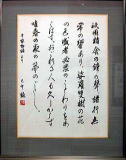 祇園精舎の鐘の聲 諸行無
常の響あり 娑羅雙樹の花
の色 盛者必衰のことわりをあ
らはす おごれる人も久しからず
唯春の夜の夢のごとし
平家物語より